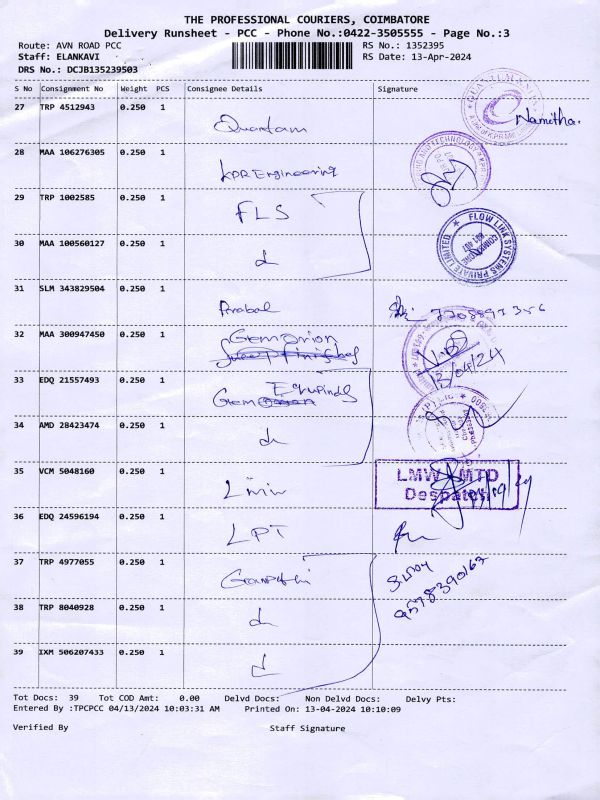 THE PROFESSIONAL COURIERS, COIMBATORE
Delivery Runsheet - PCC - Phone No.:0422-3505555 - Page No.:3
Route: AVN ROAD PCC RS No.: 1352395
Staff: ELANKAVI RS Date: 13-Apr-2024
DRS No.: DCJB135239503
S No Consignment No Weight PCS Consignee Details Signature
27 TRP 4512943 0.250 1
Quantam Namitha.
28 MAA 106276305 0.250 1
KPR Engineering
29 TRP 1002585 0.250 1
FLS
FLOW LINK SYSTEMS PRIVATE LIMITED
COIMBATORE
641 407
30 MAA 100560127 0.250 1
31 SLM 343829504 0.250 1
32 MAA 300947450 0.250 1
13/04/24
33 EDQ 21557493 0.250 1
34 AMD 28423474 0.250 1
35 VCM 5048160 0.250 1
LMW
LMW MTD
Despatch
36 EDQ 24596194 0.250 1
LPT
37 TRP 4977055 0.250 1
9578390163
38 TRP 8040928 0.250 1
39 IXM 506207433 0.250 1
Tot Docs: 39 Tot COD Amt: 0.00 Delvd Docs: Non Delvd Docs: Delvy Pts:
Entered By :TPCPCC 04/13/2024 10:03:31 AM Printed On: 13-04-2024 10:10:09
Verified By Staff Signature